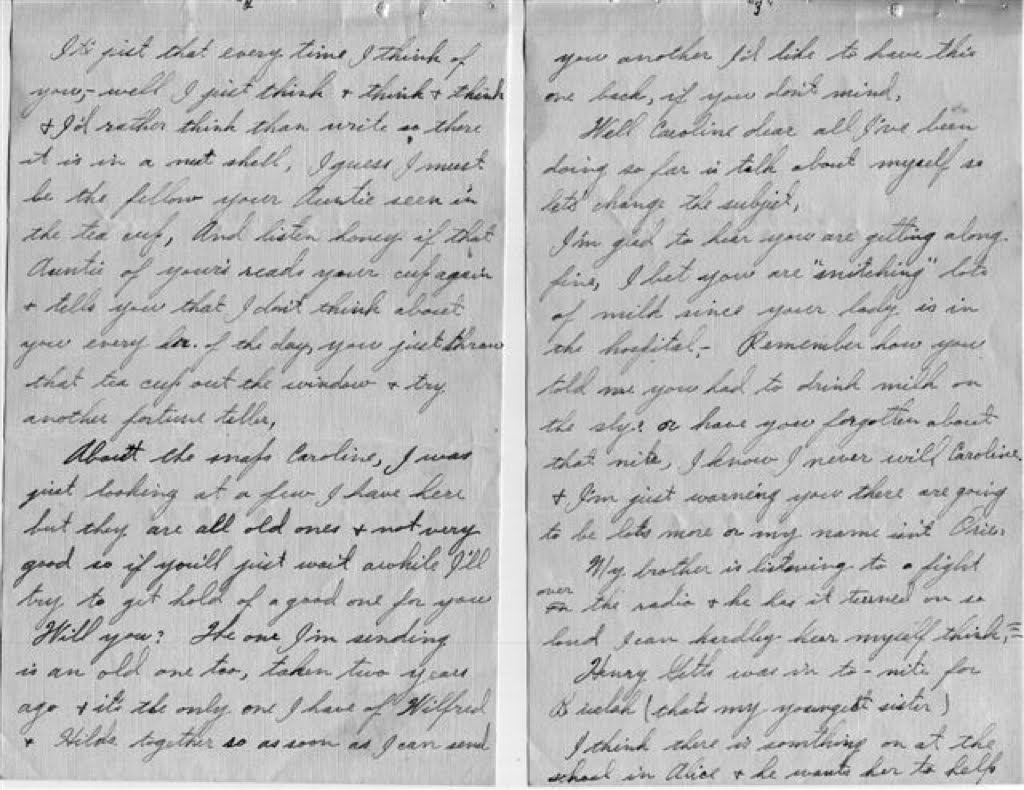 2
It's just that every time I think of
you,- well I just think + think + think
+ I'd rather think than write so there
it is in a nut shell, I guess I must
be the fellow your Auntie seen in
the tea cup, And listen honey if that
Auntie of your's reads your cup again
+ tells you that I don't think about
you every hr. of the day, you just throw
that tea cup out the window + try
another fortune teller,
About the snaps Caroline, I was
just looking at a few I have here
but they are all old ones + not very
good so if you'll just wait awhile I'll
try to get hold of a good one for you
Will you? The one I'm sending
is an old one too, taken two years
ago + its the only one I have of Wilfred
+ Hilda together so as soon as I can send
"3"
you another I'd like to have this
one back, if you don't mind,
Well Caroline dear all I've been
doing so far is talk about myself so
lets' change the subject,
I'm glad to hear you are getting along
fine, I bet you are "snitching" lots
of milk since your lady is in
the hospital,- Remember how you
told me you had to drink milk on
the sly? or have you forgotten about
that nite, I know I never will Caroline
+ I'm just warning you there are going
to be lots more or my name isn't
My brother is listening to a fight
over the radio + he has it turned on so
loud I can hardley hear myself think,=
Henry was in to-nite for
Beulah (thats my youngest sister)
I think there is somthing on at the
school in Alice + he wants her to help